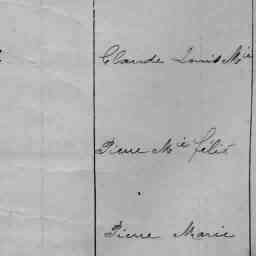 Claude Louis Mie
Pierre Mie Félix
Pierre Marie